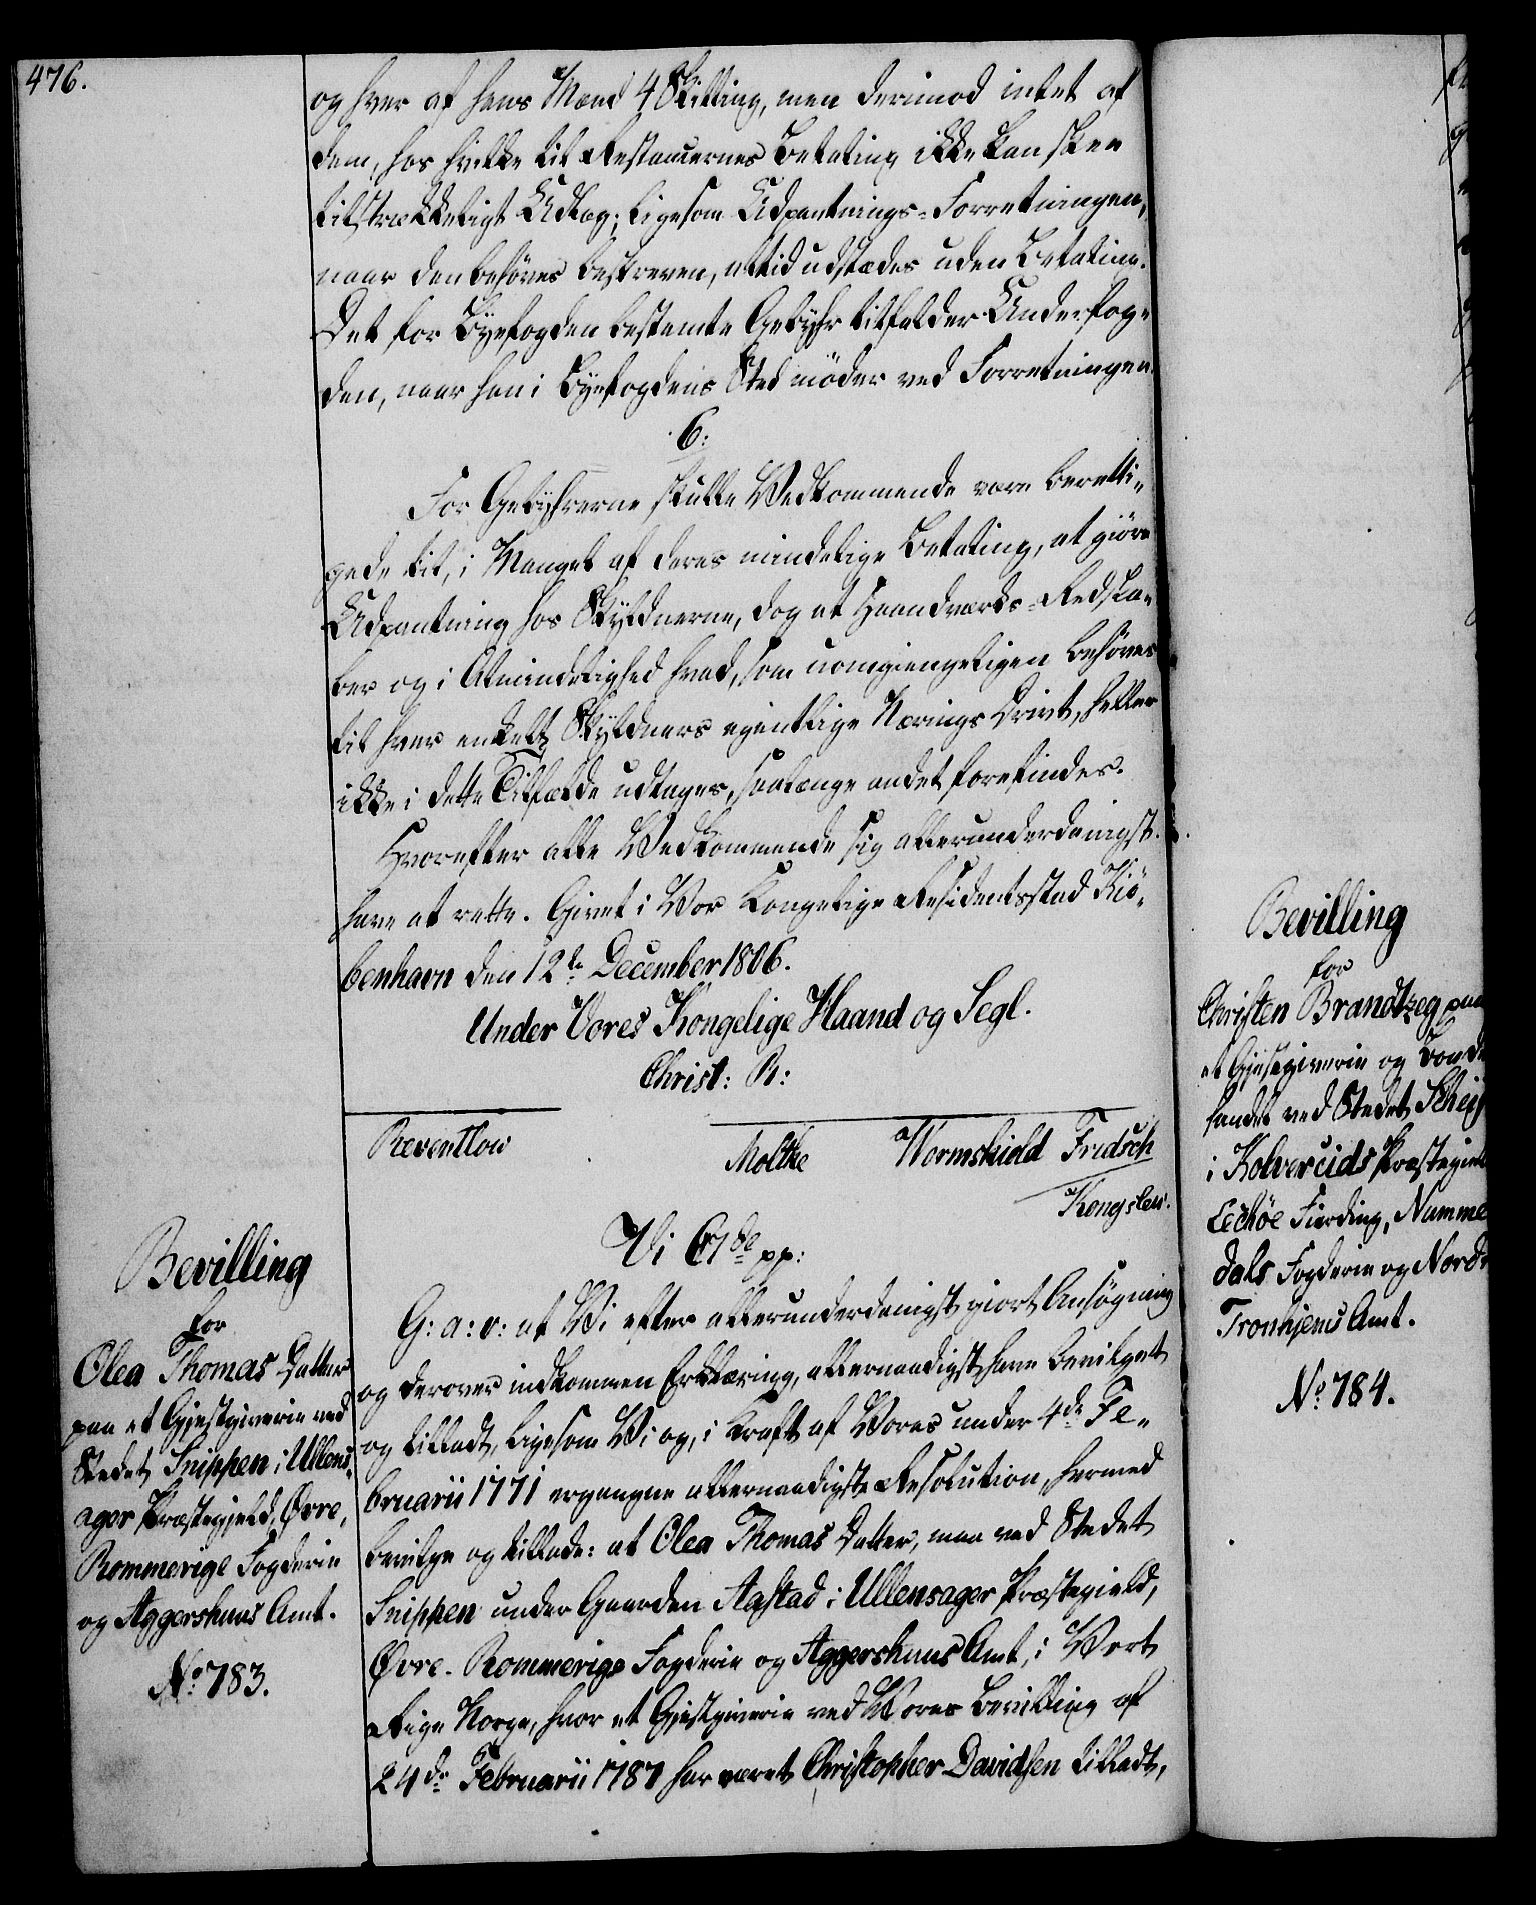 476.
og hver af hans Mænd 4 Skilling, men derimod intet af
dem, hos hvilke til Restancernes Betaling ikke kan skee
tilstrækkeligt Udlæg; ligesom Udpantnings-Forretningen,
naar den behöves beskreven, altid udstædes uden Betaling.
Det for Byefogden bestemte Gebyhr tilfalder Underfog-
den, naar han i Byefogdens Sted möder ved Forretningen.
6:
For Gebyhrerne skulle Vedkommende være beretti-
gede til, i Mangel af deres mindelige Betaling, at giöre
Udpantning hos Skyldnerne, dog at Haandværks-Redska-
ber og i Almindelighed hvad, som uomgiengeligen behöves
til hver enkelt Skyldners egentlige Nærings Drivt, heller
ikke i dette Tilfælde udtages, saalænge andet forefindes.
Hvorefter alle Vedkommende sig allerunderdanigst
have at rette. Givet i Vor Kongelige Residentsstad Kiö-
benhavn den 12te December 1806.
Under Vores Kongelige Haand og Segl.
Christ: R:
Reventlow
Moltke Wormskiold Fridsch
Kongslew.
Bevilling
for
Olea Thomas Datter
paa et Gjestgiverie ved
Stedet Snippen i Ullens-
ager Præstegjeld, Øvre,
Rommerige Fogderie
og Aggershuus Amt.
No. 783.
Vi C 7de pp:
G: a: v: at Vi efter allerunderdanigst giort Ansøgning
og derover indkommen Erklæring, allernaadigst have bevilget
og tilladt, ligesom Vi og, i Kraft af Vores under 4de Fe-
bruarii 1771 ergangne allernaadigste Resolution, hermed
bevilge og tillade: at Olea Thomas Datter, maa ved Stedet
Snippen under Gaarden Aastad i Ullensager Præstegield,
Øvre-Rommerige Fogderie og Aggershuus Amt, i Vort
Rige Norge, hvor et Gjestgiverie ved Vores Bevilling af
24de Februarii 1787 har været Christopher Davidsen tilladt,
Bevilling
for
Christen Brandtzeg paa
et Gjestgiverie og
handel ved Stedet
i Kolvereids Præstegield
Leckøe Fierding, Numme
dals Fogderie og Nordr
Tronhjems Amt.
No. 784.